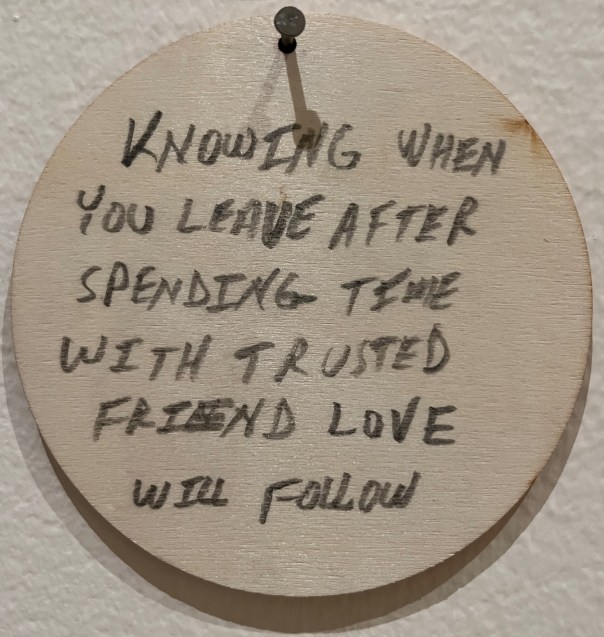 KNOWING WHEN
YOU LEAVE AFTER
SPENDING TIME
WITH TRUSTED
FRIEND LOVE
WILL FOLLOW